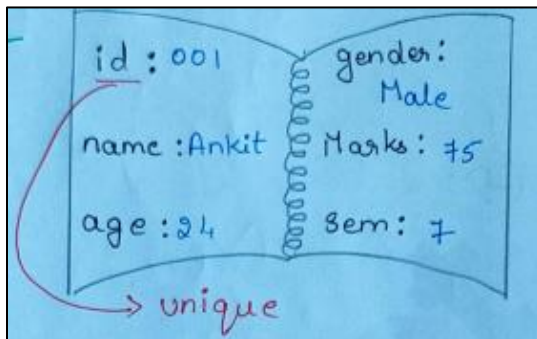 id : 001
name : Ankit
age : 24
gender :
Male
Marks : 75
Sem : 7
unique